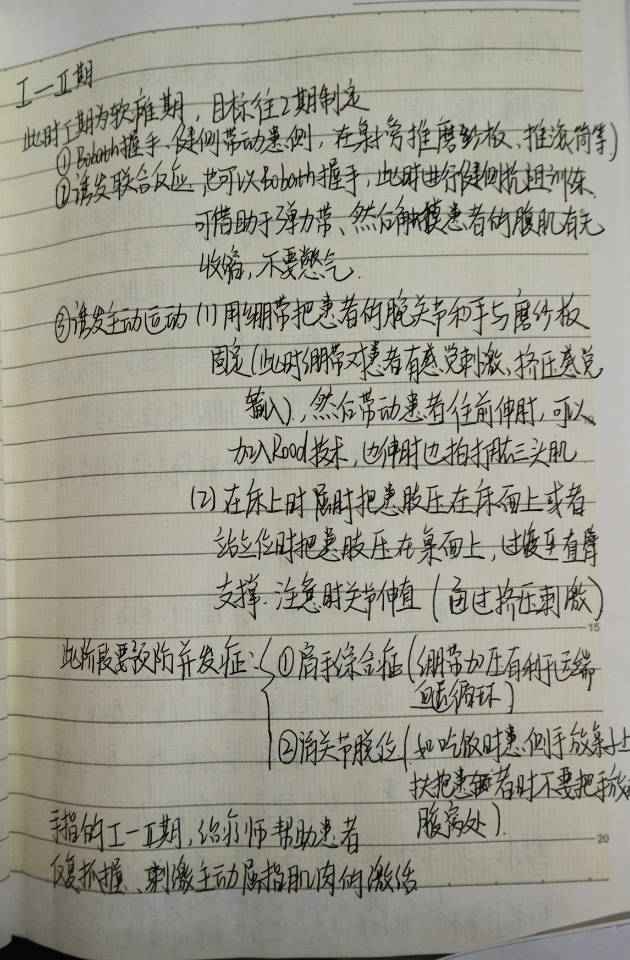 I—II期
此时I期为软瘫期，目标往2期制定
①Bobath握手、健侧带动患侧，在桌旁推磨砂板、推滚筒等)
②诱发联合反应，也可以Bobath握手，此时进行健侧抗阻训练，
可借助于弹力带、然后触摸患者的腹肌有无
收缩，不要憋气.
③诱发主动运动 (1) 用绷带把患者的腕关节和手与磨砂板
固定(此时绷带对患者有感觉刺激、挤压感觉
输入)，然后带动患者往前伸肘，可以
加入Rood技术，边伸肘边拍打肱三头肌
(2) 在床上时 屈肘把患肢压在床面上或者
站立位时把患肢压在桌面上，过渡至直臂
支撑. 注意肘关节伸直 (通过挤压刺激)
此阶段要预防并发症：①肩手综合征(绷带加压有利于远端
血液循环)
②肩关节脱位 (如吃饭时患侧手放桌子上
扶抱患者时不要把手放
腋窝处).
手指的I—II期，治疗师帮助患者
反复抓握、刺激主动屈指肌肉的激活
15
20